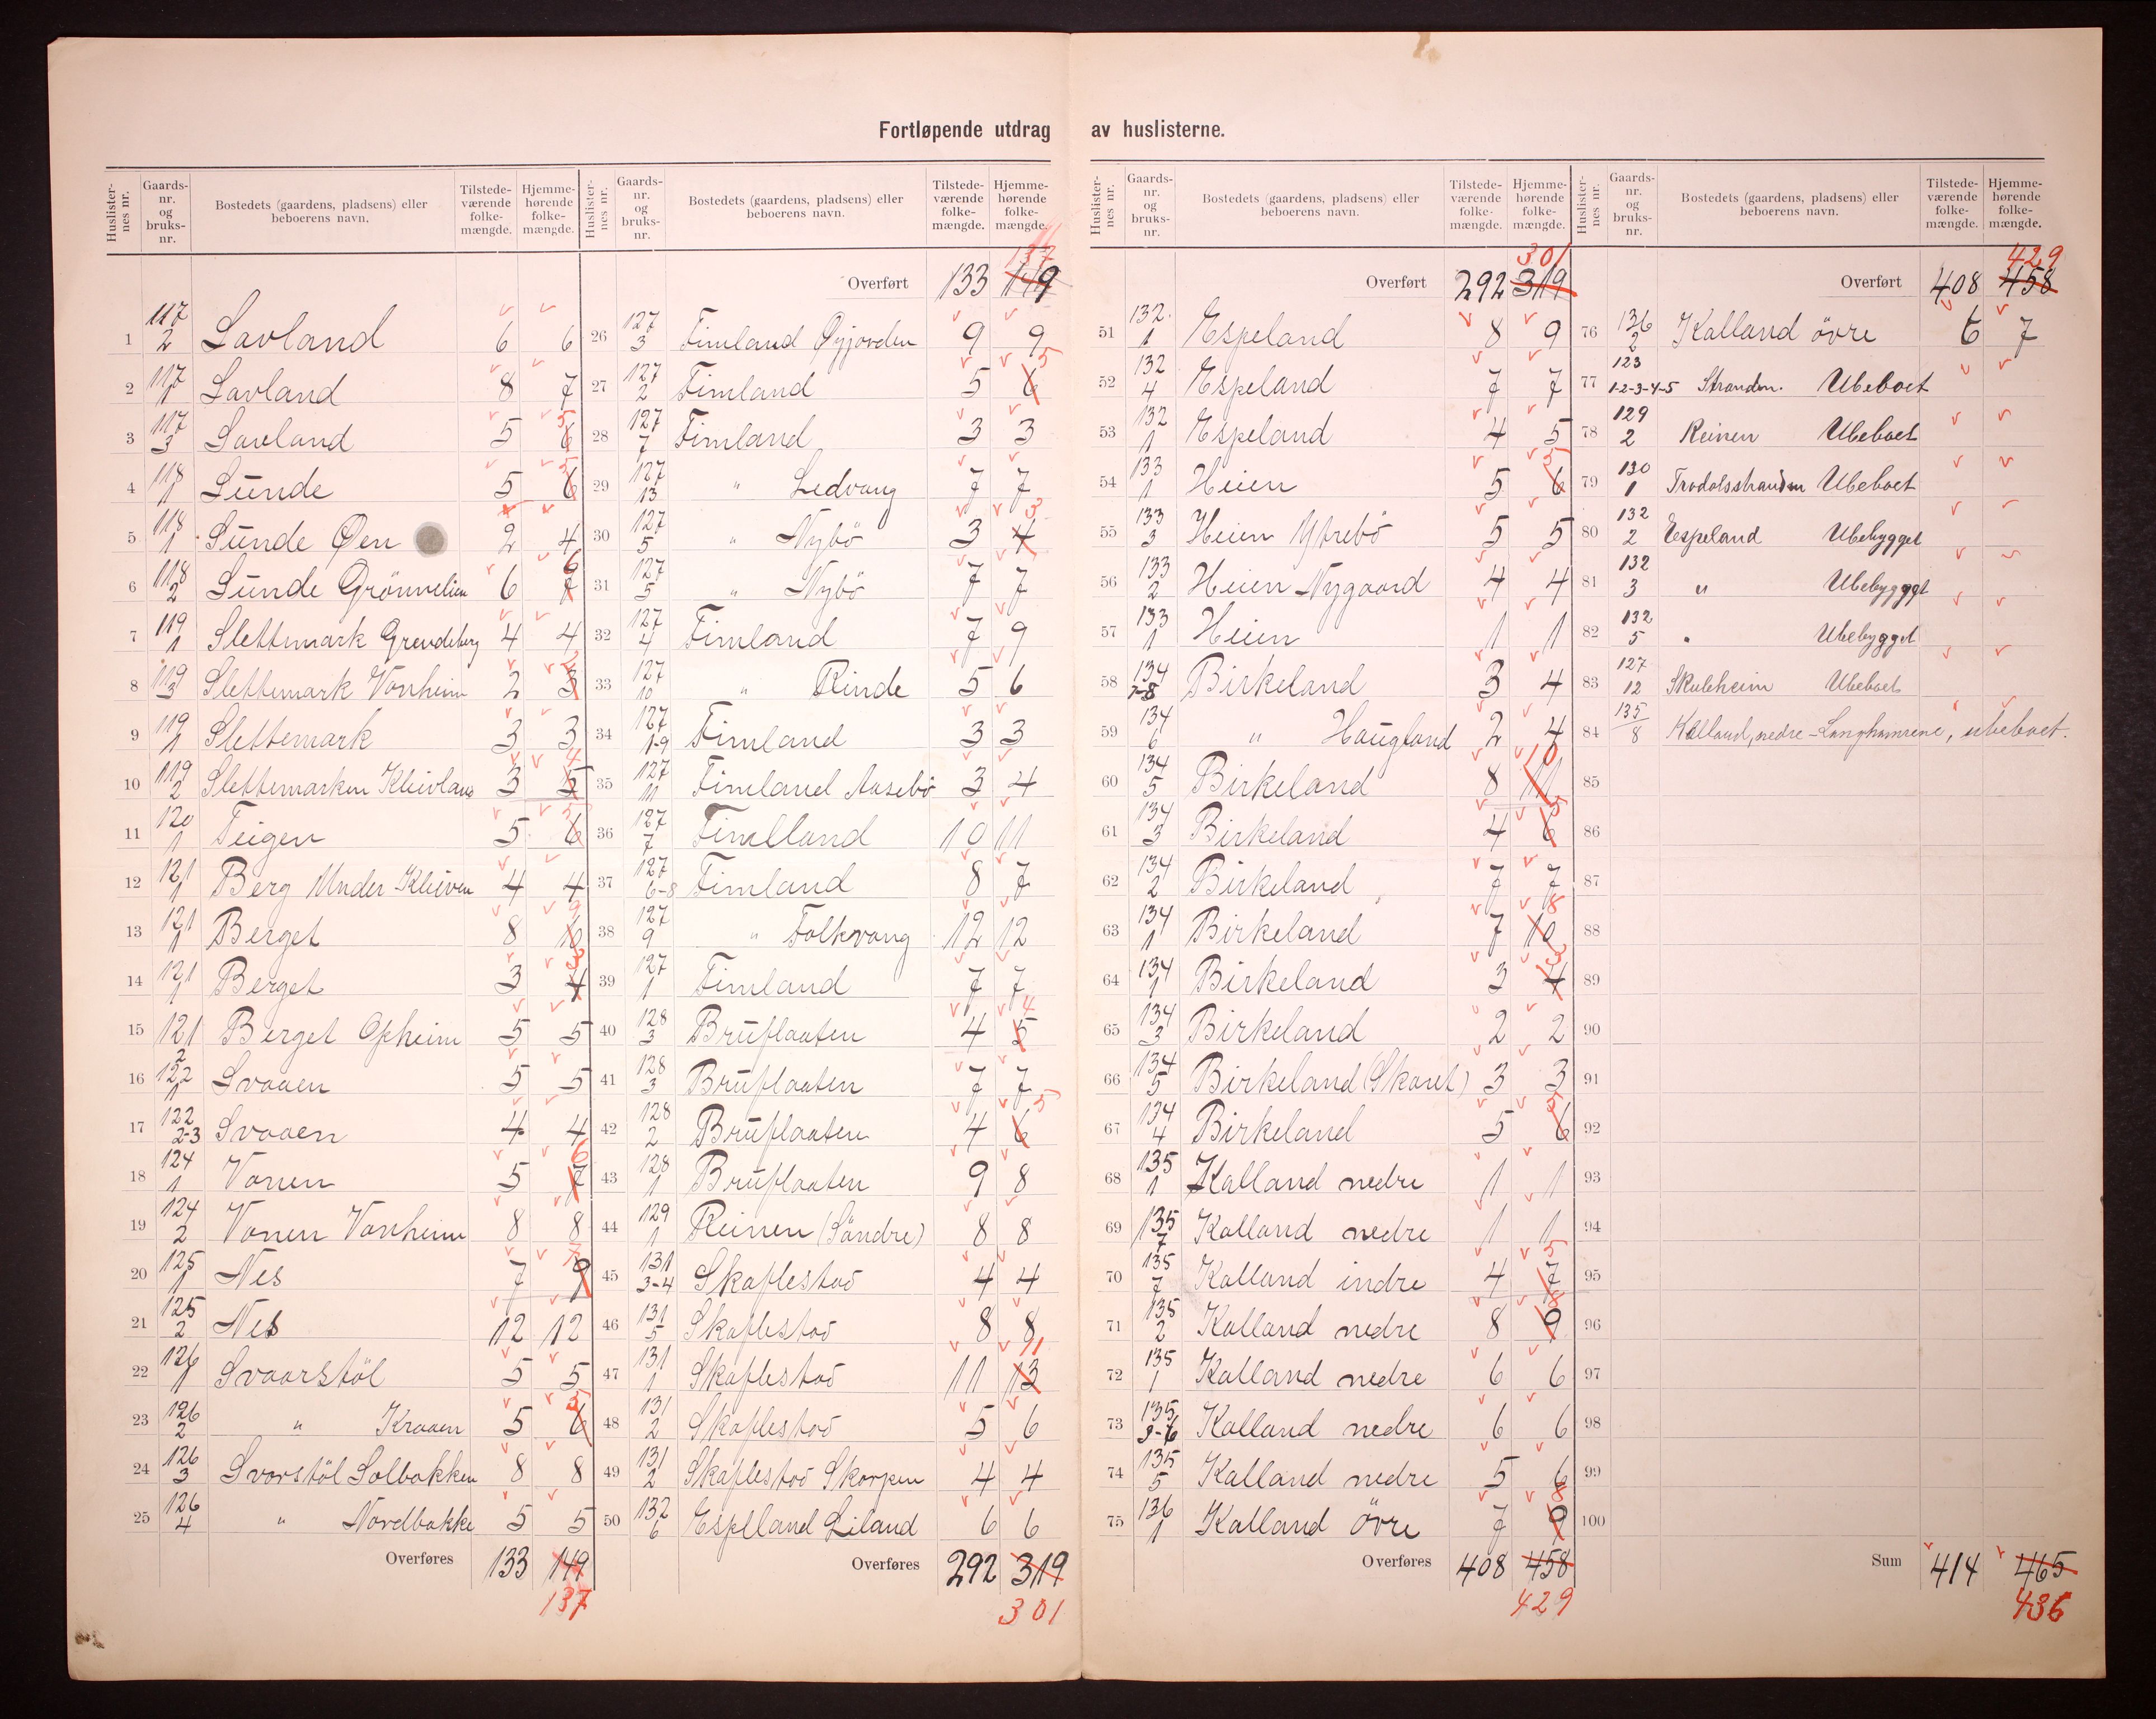 Fortløpende utdrag av huslisterne.
Huslister-nes nr. Gaards-nr. og bruks-nr. Bostedets (gaardens, pladsens) eller beboerens navn. Tilstede-værende folke-mængde. Hjemme-hørende folke-mængde.
1 117 2 Lavland 6 6
2 117 1 Lavland 8 7
3 117 3 Lavland 5 6 5
4 118 1 Sunde 5 6 5
5 118 1 Sunde Øen 2 4
6 118 2 Sunde Grönnelien 6 7 6
7 119 1 Slettemark Grendeberg 4 4
8 119 3 Slettemark Vonheim 2 3 2
9 119 1 Slettemark 3 3
10 119 2 Slettemarken Kleivland 3 5 4
11 120 1 Teigen 5 6 5
12 121 1 Berg Under Kleiven 4 4
13 121 1 Berget 8 10 9
14 121 1 Berget 3 4 3
15 121 2 Berget Opheim 5 5
16 122 1 Svaaen 5 5
17 122 2-3 Svaaen 4 4
18 124 1 Vonen 5 7 6
19 124 2 Vonen Vonheim 8 8
20 125 1 Nes 7 9 7
21 125 2 Nes 12 12
22 126 1 Svaarstöl 5 5
23 126 2 " Kraaen 5 6 5
24 126 3 Svorstöl Solbakken 8 8
25 126 4 " Nordbakke 5 5
Overføres 133 149
137
Huslister-nes nr. Gaards-nr. og bruks-nr. Bostedets (gaardens, pladsens) eller beboerens navn. Tilstede-værende folke-mængde. Hjemme-hørende folke-mængde.
137
Overført 133 149
26 127 3 Fimland Øyjorden 9 9
27 127 2 Fimland 5 6 5
28 127 7 Fimland 3 3
29 127 13 " Ledvang 7 7
30 127 5 " Nybö 3 4 3
31 127 5 " Nybö 7 7
32 127 4 Fimland 7 9
33 127 10 " Rinde 5 6
34 127 1-9 Fimland 3 3
35 127 11 Fimland Aasebö 3 4
36 127 7 Fimlland 10 11
37 127 6-8 Fimland 8 7
38 127 9 " Folkvang 12 12
39 127 1 Fimland 7 7
40 128 3 Bruflaaten 4 5 4
41 128 3 Bruflaaten 7 7
42 128 2 Bruflaaten 4 6 5
43 128 1 Bruflaaten 9 8
44 129 1 Reinen (Söndre) 8 8
45 131 3-4 Skaflestad 4 4
46 131 5 Skaflestad 8 8
47 131 1 Skaflestad 11 13 11
48 131 2 Skaflestad 5 6
49 131 2 Skaflestad Skorpen 4 4
50 132 6 Esplland Liland 6 6
Overføres 292 319
301
Huslister-nes nr. Gaards-nr. og bruks-nr. Bostedets (gaardens, pladsens) eller beboerens navn. Tilstede-værende folke-mængde. Hjemme-hørende folke-mængde.
301
Overført 292 319
51 132 1 Espeland 8 9
52 132 4 Espeland 7 7
53 132 1 Espeland 4 5
54 133 1 Heien 5 6 5
55 133 3 Heien Ytrebö 5 5
56 133 2 Heien Nygaard 4 4
57 133 1 Heien 1 1
58 134 7-8 Birkeland 3 4
59 134 6 " Haugland 2 4
60 134 5 Birkeland 8 11 10
61 134 3 Birkeland 4 6 5
62 134 2 Birkeland 7 7
63 134 1 Birkeland 7 10 8
64 134 1 Birkeland 3 4 3
65 134 3 Birkeland 2 2
66 134 5 Birkeland (Skaret) 3 3
67 134 4 Birkeland 5 6 5
68 135 1 Kalland nedre 1 1
69 135 7 Kalland nedre 1 1
70 135 7 Kalland indre 4 7 5
71 135 2 Kalland nedre 8 9 8
72 135 1 Kalland nedre 6 6
73 135 3-6 Kalland nedre 6 6
74 135 5 Kalland nedre 5 6
75 136 1 Kalland övre 7 9 8
Overføres 408 458
429
Huslister-nes nr. Gaards-nr. og bruks-nr. Bostedets (gaardens, pladsens) eller beboerens navn. Tilstede-værende folke-mængde. Hjemme-hørende folke-mængde.
429
Overført 408 458
76 136 2 Kalland övre 6 7
77 123 1-2-3-4-5 Stranden. Ubeboet
78 129 2 Reinen Ubeboet
79 130 1 Trodalsstranden Ubeboet
80 132 2 Espeland Ubebygget
81 132 3 " Ubebygget
82 132 5 " Ubebygget
83 127 12 Skuleheim Ubeboet
84 135 8 Kalland, nedre - Langhamrene, ubeboet.
85
86
87
88
89
90
91
92
93
94
95
96
97
98
99
100
Sum 414 465
436